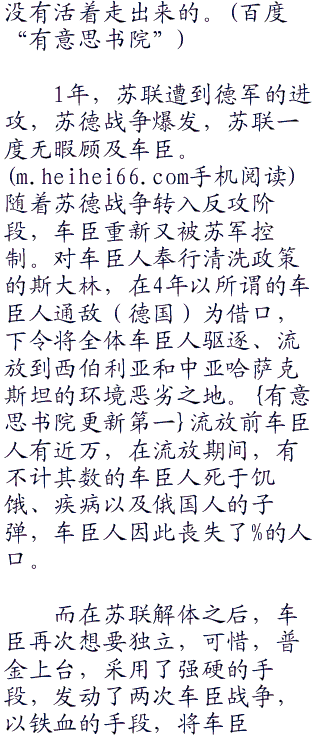 没有活着走出来的。(百度
“有意思书院”)
1年，苏联遭到德军的进
攻，苏德战争爆发，苏联一
度无暇顾及车臣。
(m.heihei66.com手机阅读)
随着苏德战争转入反攻阶
段，车臣重新又被苏军控
制。对车臣人奉行清洗政策
的斯大林，在4年以所谓的车
臣人通敌（德国）为借口，
下令将全体车臣人驱逐、流
放到西伯利亚和中亚哈萨克
斯坦的环境恶劣之地。{有意
思书院更新第一}流放前车臣
人有近万，在流放期间，有
不计其数的车臣人死于饥
饿、疾病以及俄国人的子
弹，车臣人因此丧失了%的人
口。
而在苏联解体之后，车
臣再次想要独立，可惜，普
金上台，采用了强硬的手
段，发动了两次车臣战争，
以铁血的手段，将车臣